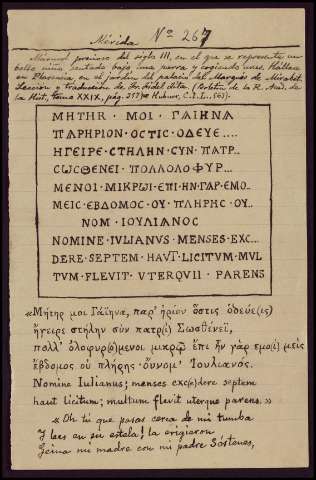 Mérida Nº 267
Mármol precioso del siglo III, en el que se representa un
bello niño sentado bajo una parra y cogiendo uvas. Hállase
en Plasencia en el jardín del palacio del Marqués de Mirabel.
Lección y traducción de Fidel Fita. (Boletín de la R. Acad. de
la Hist., tomo XXIX, pág. Hübner, C.I.L.
ΜΗΤΗΡ · ΜΟΙ · ΓΑΙΗΝΑ
ΠΑΡΗΡΙΟΝ · ΟСΤΙС · ΟΔΕΥΕ....
ΗΓΕΙΡΕ · СΤΗΛΗΝ · СΥΝ · ΠΑΤΡ..
СωСΘΕΝΕΙ · ΠΟΛΛΟΛΟΦΥΡ...
ΜΕΝΟΙ · ΜΙΚΡωΙ · ΕΠΙ · ΗΝ · ΓΑΡ · ΕΜΟ..
ΜΕΙС · ΕΒΔΟΜΟС · ΟΥ · ΠΛΗΡΗС · ΟΥ..
ΝΟΜ · ΙΟΥΛΙΑΝΟС
NOMINE · IVLIANVS · MENSES · EXC...
DERE · SEPTEM · HAVT · LICITVM · MVL
TVM · FLEVIT · VTERQVII · PARENS
«Μήτηρ μοι Γάϊηνα, παρ' ἠρίον ὅστις ὁδεύε(ις)
ἤγειρε στήλην σὺν πατρ(ὶ) Σωσθένεϊ,
πολλ' ὀλοφυρ(ό)μενοι μικρῷ ἐπὶ ἦν γὰρ ἐμο(ὶ) μεὶς
ἕβδομος οὐ πλήρης· οὔνομ' Ἰουλιανός.
Nomine Iulianus; menses exc(e)dere septem
haut licitum; multum flevit uterque parens.»
«Oh tú que pasas cerca de mi tumba
Y lees en su estela! la erigieron
Geina mi madre con mi padre Sóstenes,